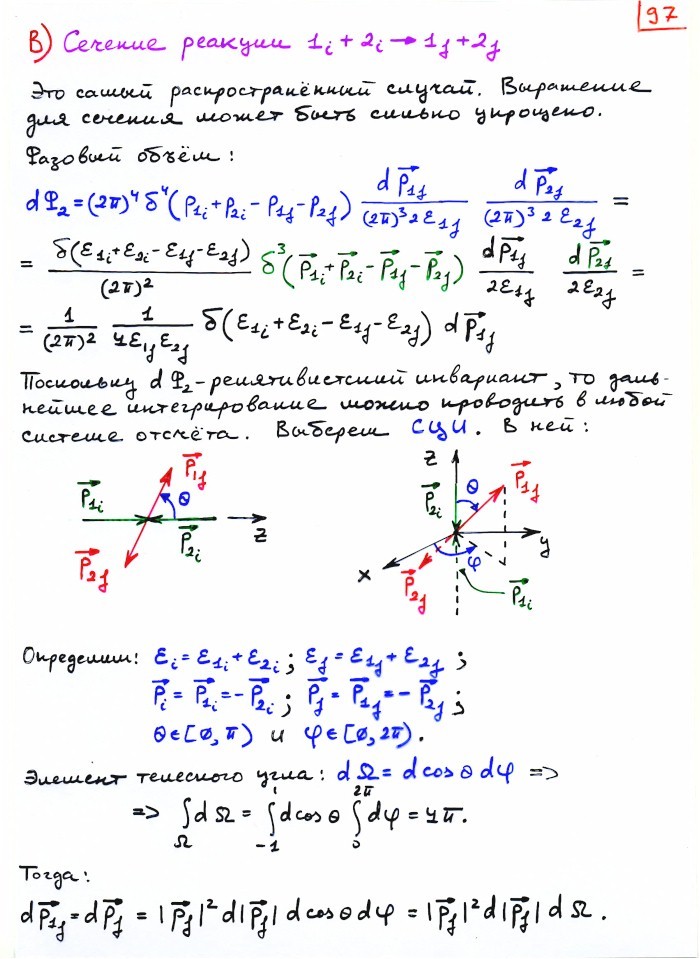 97
В) Сечение реакции 1ᵢ + 2ᵢ → 1_f + 2_f
Это самый распространённый случай. Выражение
для сечения может быть сильно упрощено.
Фазовый объём:
dΦ₂ = (2π)⁴ δ⁴(p₁ᵢ + p₂ᵢ − p₁f − p₂f) dp⃗₁f/((2π)³ 2ε₁f) dp⃗₂f/((2π)³ 2ε₂f) =
= δ(ε₁ᵢ + ε₂ᵢ − ε₁f − ε₂f)/(2π)² δ³(p⃗₁ᵢ + p⃗₂ᵢ − p⃗₁f − p⃗₂f) dp⃗₁f/2ε₁f dp⃗₂f/2ε₂f =
= 1/(2π)² 1/(4ε₁f ε₂f) δ(ε₁ᵢ + ε₂ᵢ − ε₁f − ε₂f) dp⃗₁f
Поскольку dΦ₂ - релятивистский инвариант, то даль-
нейшее интегрирование можно проводить в любой
системе отсчёта. Выберем СЦИ. В ней:
p⃗₁ᵢ p⃗₁f θ p⃗₂ᵢ p⃗₂f z
z p⃗₂ᵢ θ p⃗₁f y x φ p⃗₂f p⃗₁ᵢ
Определим: εᵢ = ε₁ᵢ + ε₂ᵢ ; ε_f = ε₁f + ε₂f ;
p⃗ᵢ = p⃗₁ᵢ = − p⃗₂ᵢ ; p⃗_f = p⃗₁f = − p⃗₂f ;
θ ∈ [0, π) и φ ∈ [0, 2π).
Элемент телесного угла: dΩ = d cos θ dφ =>
=> ∫_Ω dΩ = ∫₋₁¹ d cos θ ∫₀^{2π} dφ = 4π.
Тогда:
dp⃗₁f = dp⃗_f = |p⃗_f|² d|p⃗_f| d cos θ dφ = |p⃗_f|² d|p⃗_f| dΩ.